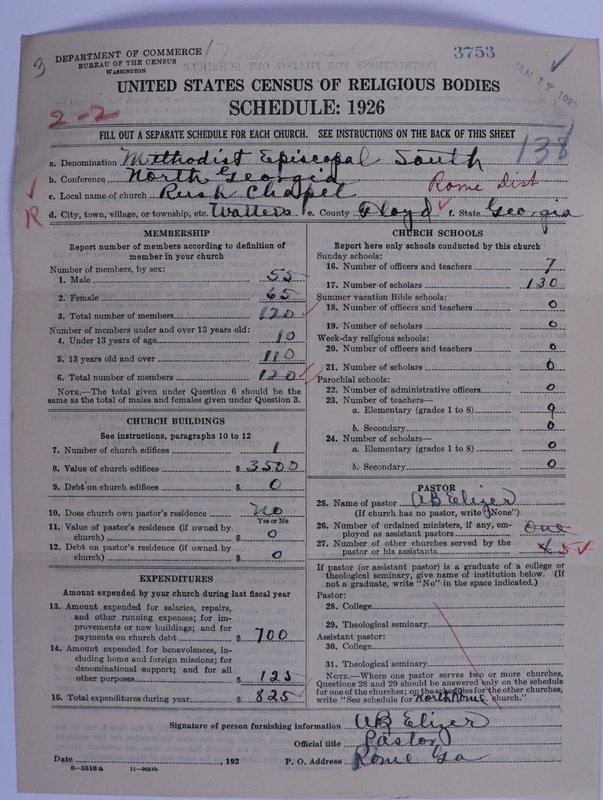 3
DEPARTMENT OF COMMERCE
BUREAU OF THE CENSUS
WASHINGTON
3753
UNITED STATES CENSUS OF RELIGIOUS BODIES
SCHEDULE: 1926
2-2
FILL OUT A SEPARATE SCHEDULE FOR EACH CHURCH. SEE INSTRUCTIONS ON THE BACK OF THIS SHEET
138
a. Denomination Methodist Episcopal South
b. Conference North Georgia
c. Local name of church Rush Chapel Rome Dist
R d. City, town, village, or township, etc. Walters e. County Floyd f. State Georgia
MEMBERSHIP
Report number of members according to definition of
member in your church
Number of members, by sex:
1. Male 55
2. Female 65
3. Total number of members 120
Number of members under and over 13 years old:
4. Under 13 years of age 10
5. 13 years old and over 110
6. Total number of members 120
NOTE.—The total given under Question 6 should be the
same as the total of males and females given under Question 3.
CHURCH BUILDINGS
See instructions, paragraphs 10 to 12
7. Number of church edifices 1
8. Value of church edifices $ 3500
9. Debt on church edifices $ 0
10. Does church own pastor's residence No
Yes or No
11. Value of pastor's residence (if owned by
church) $ 0
12. Debt on pastor's residence (if owned by
church) $ 0
EXPENDITURES
Amount expended by your church during last fiscal year
13. Amount expended for salaries, repairs,
and other running expenses; for im-
provements or new buildings; and for
payments on church debt $ 700
14. Amount expended for benevolences, in-
cluding home and foreign missions; for
denominational support; and for all
other purposes $ 125
15. Total expenditures during year $ 825
CHURCH SCHOOLS
Report here only schools conducted by this church
Sunday schools:
16. Number of officers and teachers 7
17. Number of scholars 130
Summer vacation Bible schools:
18. Number of officers and teachers 0
19. Number of scholars 0
Week-day religious schools:
20. Number of officers and teachers 0
21. Number of scholars 0
Parochial schools:
22. Number of administrative officers 0
23. Number of teachers—
a. Elementary (grades 1 to 8) 0
b. Secondary 0
24. Number of scholars—
a. Elementary (grades 1 to 8) 0
b. Secondary 0
PASTOR
25. Name of pastor AB Elizer
(If church has no pastor, write "None")
26. Number of ordained ministers, if any, em-
ployed as assistant pastors one
27. Number of other churches served by the
pastor or his assistants 5
If pastor (or assistant pastor) is a graduate of a college or
theological seminary, give name of institution below. (If
not a graduate, write "No" in the space indicated.)
Pastor:
28. College
29. Theological seminary
Assistant pastor:
30. College
31. Theological seminary
NOTE.—Where one pastor serves two or more churches,
Questions 28 and 29 should be answered only on the schedule
for one of the churches; on the schedules for the other churches,
write "See schedule for North Rome church."
Signature of person furnishing information AB Elizer
Official title Pastor
Date , 192 P. O. Address Rome Ga
6-5518a 11-9034b